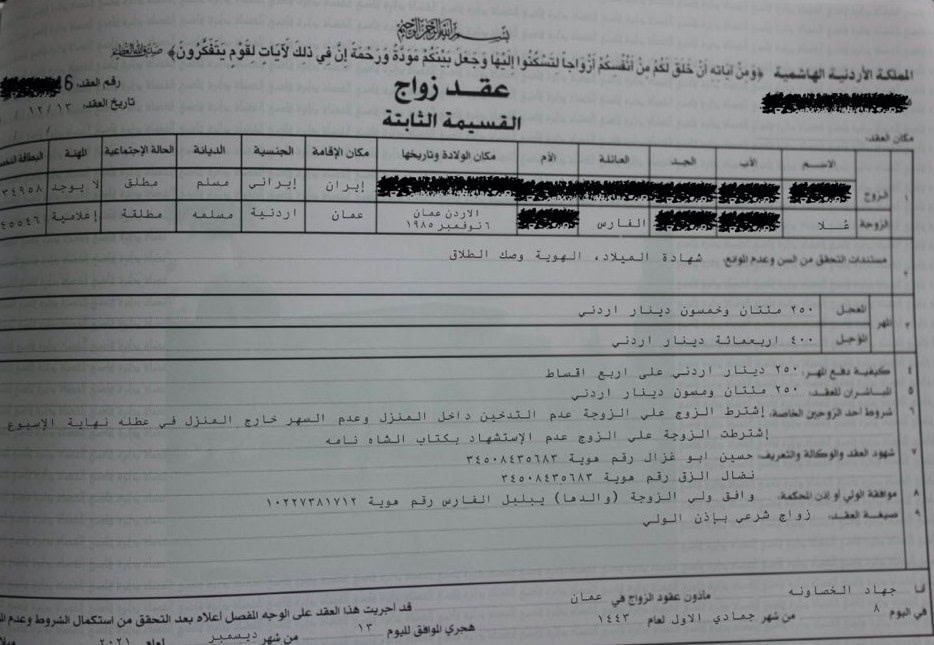 بسم الله الرحمن الرحيم
المملكة الأردنية الهاشمية ﴿وَمِنْ آيَاتِهِ أَنْ خَلَقَ لَكُمْ مِنْ أَنْفُسِكُمْ أَزْوَاجاً لِتَسْكُنُوا إِلَيْهَا وَجَعَلَ بَيْنَكُمْ مَوَدَّةً وَرَحْمَةً إِنَّ فِي ذَلِكَ لَآيَاتٍ لِقَوْمٍ يَتَفَكَّرُونَ﴾ صدق الله العظيم
عقد زواج
رقم العقد: 6
القسيمة الثابتة
تاريخ العقد: ١٢/١٣ / /
مكان العقد:
الاسم الأب الجد العائلة الأم مكان الولادة وتاريخها مكان الإقامة الجنسية الديانة الحالة الإجتماعية المهنة البطاقة
١ الزوج إيران إيراني مسلم مطلق لا يوجد ٣٤٩٥٨
الزوجة عُلا الفارس الاردن عمان ٦ نوفمبر ١٩٨٥ عمان اردنية مسلمه مطلقة إعلامية ٤٥٥٤٦
٢ مستندات التحقق من السن وعدم الموانع: شهادة الميلاد، الهوية وصك الطلاق
٣ المهر المعجل ٢٥٠ مئتان وخمسون دينار اردني
المؤجل ٤٠٠ اربعمائة دينار اردني
٤ كيفية دفع المهر: ٢٥٠ دينار اردني على اربع اقساط
٥ المباشران للعقد: ٢٥٠ مئتان ومسون دينار اردني
٦ شروط أحد الزوجين الخاصة: إشترط الزوج علي الزوجة عدم التدخين داخل المنزل وعدم السهر خارج المنزل في عطله نهاية الإسبوع
إشترطت الزوجة علي الزوج عدم الإستشهاد بكتاب الشاه نامه
٧ شهود العقد والوكالة والتعريف: حسين ابو غزال رقم هوية ٣٤٥٠٨٤٣٥٦٨٣
نضال الزق رقم هوية ٣٤٥٠٨٤٣٥٦٨٣
٨ موافقة الولي أو إذن المحكمة: وافق ولي الزوجة (والدها) يبلبل الفارس رقم هوية ١٠٢٢٧٣٨١٧١٢
٩ صيغة العقد: زواج شرعي بإذن الولي
أنا جهاد الخصاونه مأذون عقود الزواج في عمان قد اجريت هذا العقد على الوجه المفصل أعلاه بعد التحقق من استكمال الشروط وعدم
في اليوم ٨ من شهر جمادي الاول لعام ١٤٤٣ هجري الموافق لليوم ١٣ من شهر ديسمبر لعام ٢٠٢١